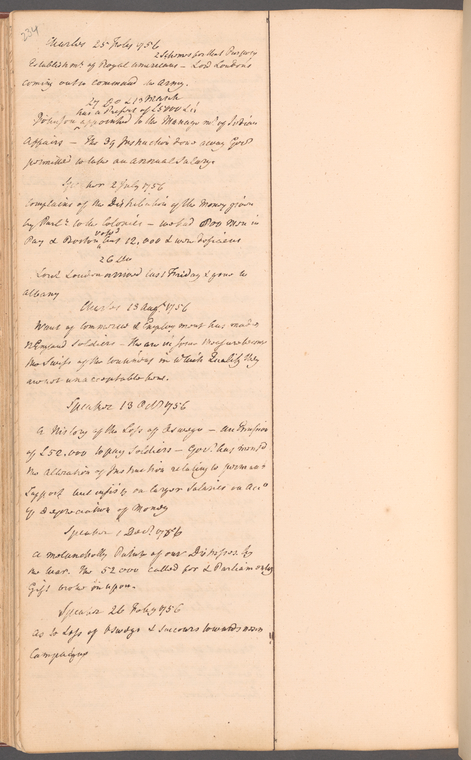 234
Charles 25 Feby 1756
2 Schemes for that Purpose
Establishmt of Royal Americans - Lord Loudons
coming out to command the Army.
27 Do & 13 March
has a Present of £5000 &
Johnson appointed to the Managemt of Indian
Affairs - The 39 Instruction done away Govr
permitted to take an annual Salary.
Speaker 2 July 1756
Complains of the Distribution of the Money given
by Parlt to the Colonies - we had 800 Men in
Pay & Boston but 12,000 & were deficient
26 Do
Lord Loudon arrived last Friday & gone to
Albany
Charles 13 Augt 1756
Want of Commerce & Employment has made
N England Soldiers - the are in some measure become
the Swiss of the Continent in which Quality they
are not unacceptable here.
Speaker 13 Octr 1756
A History of the Loss of Oswego - an Emission
of £52,000 to pay Soldiers - Govr has
the Alteration of Instruction relating to perman
Support but insists on larger Salaries on Acct
of Depreciation of Money
Speaker 1 Decr 1756
A melancholly Paint of our Distresses by
the War. The 52000 called for & Parliamentary
Gift broke in upon.
Speaker 26 Feby 1756
As to Loss of Oswego & Succours towards next
Campaign